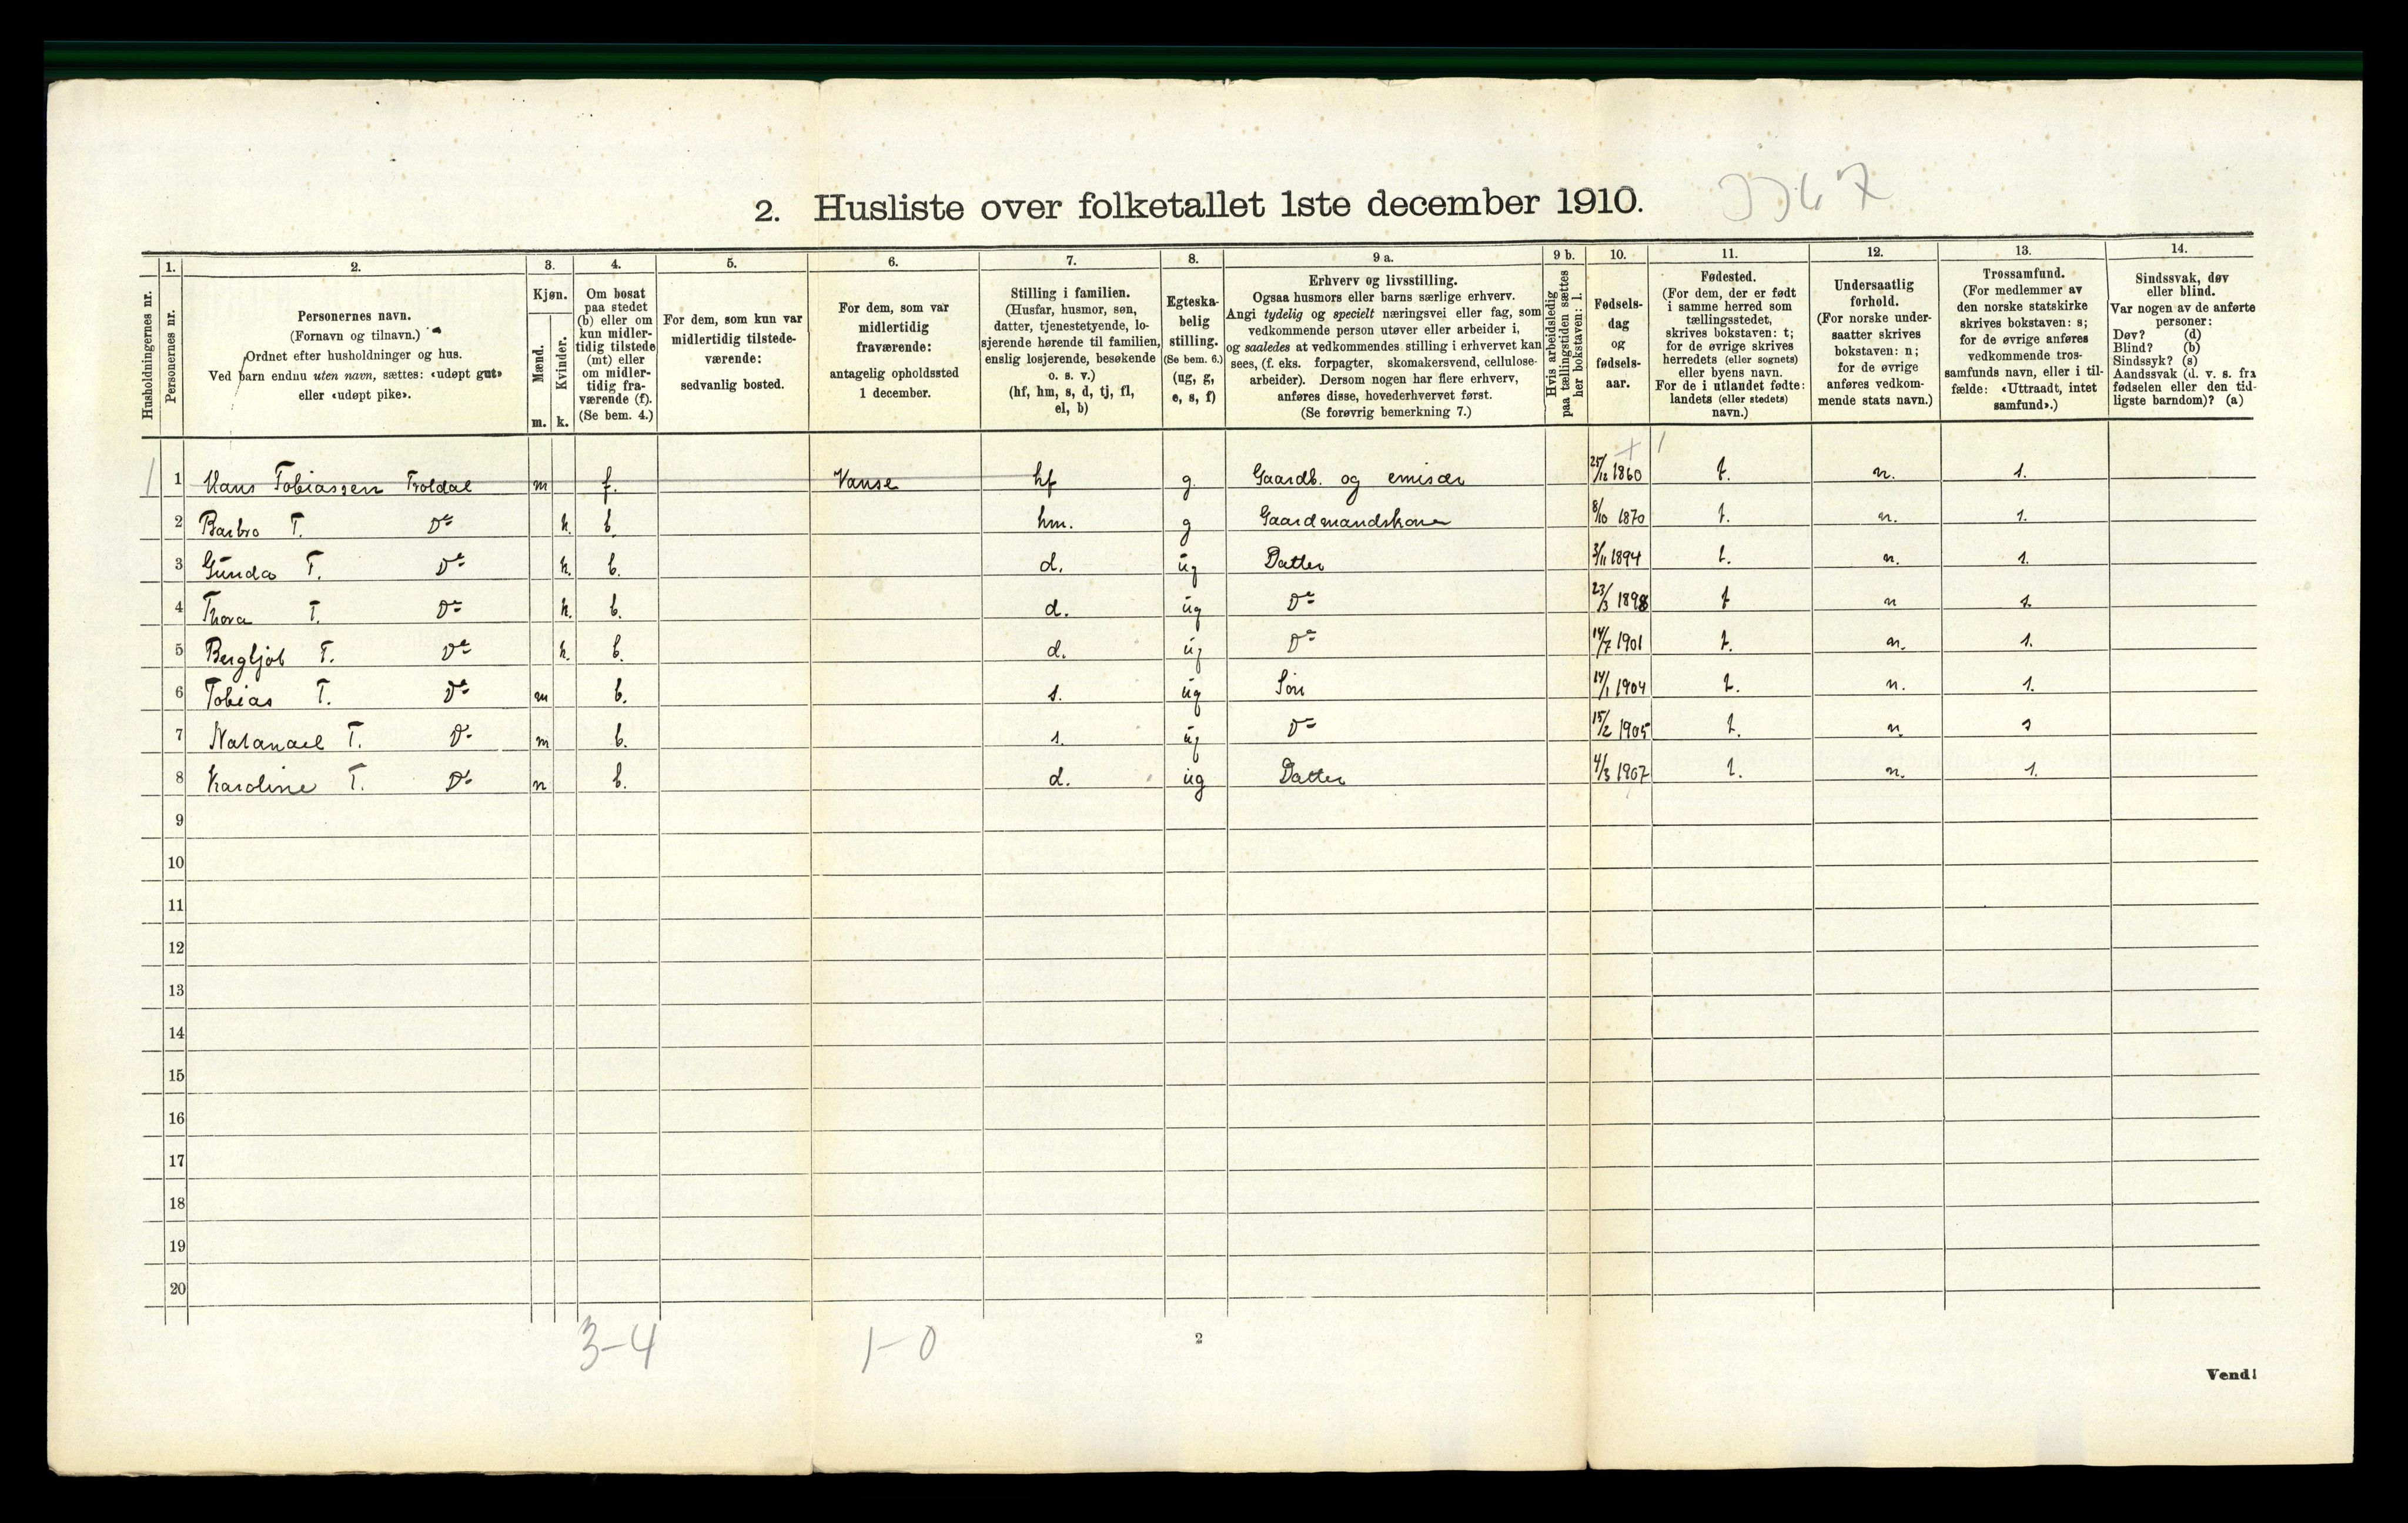 2. Husliste over folketallet 1ste december 1910.
Husholdningernes nr.
1.
Personernes nr.
2.
Personernes navn.
(Fornavn og tilnavn.)
Ordnet efter husholdninger og hus.
Ved barn endnu uten navn, sættes: «udøpt gut»
eller «udøpt pike».
3.
Kjøn.
Mænd.
Kvinder.
m. k.
4.
Om bosat
paa stedet
(b) eller om
kun midler-
tidig tilstede
(mt) eller
om midler-
tidig fra-
værende (f).
(Se bem. 4.)
5.
For dem, som kun var
midlertidig tilstede-
værende:
sedvanlig bosted.
6.
For dem, som var
midlertidig
fraværende:
antagelig opholdssted
1 december.
7.
Stilling i familien.
(Husfar, husmor, søn,
datter, tjenestetyende, lo-
sjerende hørende til familien,
enslig losjerende, besøkende
o. s. v.)
(hf, hm, s, d, tj, fl,
el, b)
8.
Egteska-
belig
stilling.
(Se bem. 6.)
(ug, g,
e, s, f)
9 a.
Erhverv og livsstilling.
Ogsaa husmors eller barns særlige erhverv.
Angi tydelig og specielt næringsvei eller fag, som
vedkommende person utøver eller arbeider i,
og saaledes at vedkommendes stilling i erhvervet kan
sees, (f. eks. forpagter, skomakersvend, cellulose-
arbeider). Dersom nogen har flere erhverv,
anføres disse, hovederhvervet først.
(Se forøvrig bemerkning 7.)
9 b.
Hvis arbeidsledig
paa tællingstiden sættes
her bokstaven: l.
10.
Fødsels-
dag
og
fødsels-
aar.
11.
Fødested.
(For dem, der er født
i samme herred som
tællingsstedet,
skrives bokstaven: t;
for de øvrige skrives
herredets (eller sognets)
eller byens navn.
For de i utlandet fødte:
landets (eller stedets)
navn.)
12.
Undersaatlig
forhold.
(For norske under-
saatter skrives
bokstaven: n;
for de øvrige
anføres vedkom-
mende stats navn.)
13.
Trossamfund.
(For medlemmer av
den norske statskirke
skrives bokstaven: s;
for de øvrige anføres
vedkommende tros-
samfunds navn, eller i til-
fælde: «Uttraadt, intet
samfund».)
14.
Sindssvak, døv
eller blind.
Var nogen av de anførte
personer:
Døv? (d)
Blind? (b)
Sindssyk? (s)
Aandssvak (d. v. s. fra
fødselen eller den tid-
ligste barndom)? (a)
1 1 Hans Tobiassen Troldal m f. Vanse hf g. Gaardb. og emisær 25/12 1860 t. n. s.
2 Barbro T. Do k. b. hm. g Gaardmandskone 8/10 1870 t. n. s.
3 Gunda T. Do k. b. d. ug Datter 3/11 1894 t. n. s.
4 Thora T. Do k. b. d. ug Do 23/3 1898 t n s.
5 Bergljot T. Do k. b. d. ug Do 14/7 1901 t. n. s.
6 Tobias T. Do m b. s. ug Søn 14/1 1904 t. n. s.
7 Natanael T. Do m b. s. ug Do 15/2 1905 t. n. s
8 Karoline T. Do n b. d. ug Datter 4/3 1907 t. n. s.
9
10
11
12
13
14
15
16
17
18
19
20
3-4 1-0
2
Vend!